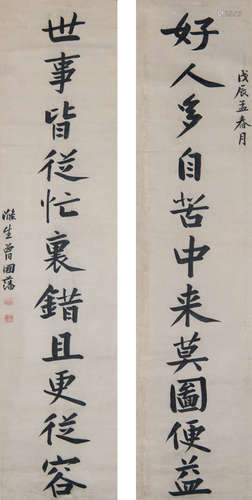 戊辰孟春月
好人多自苦中来莫圖便益
世事皆従忙裏錯且更従容
滌生曾國藩